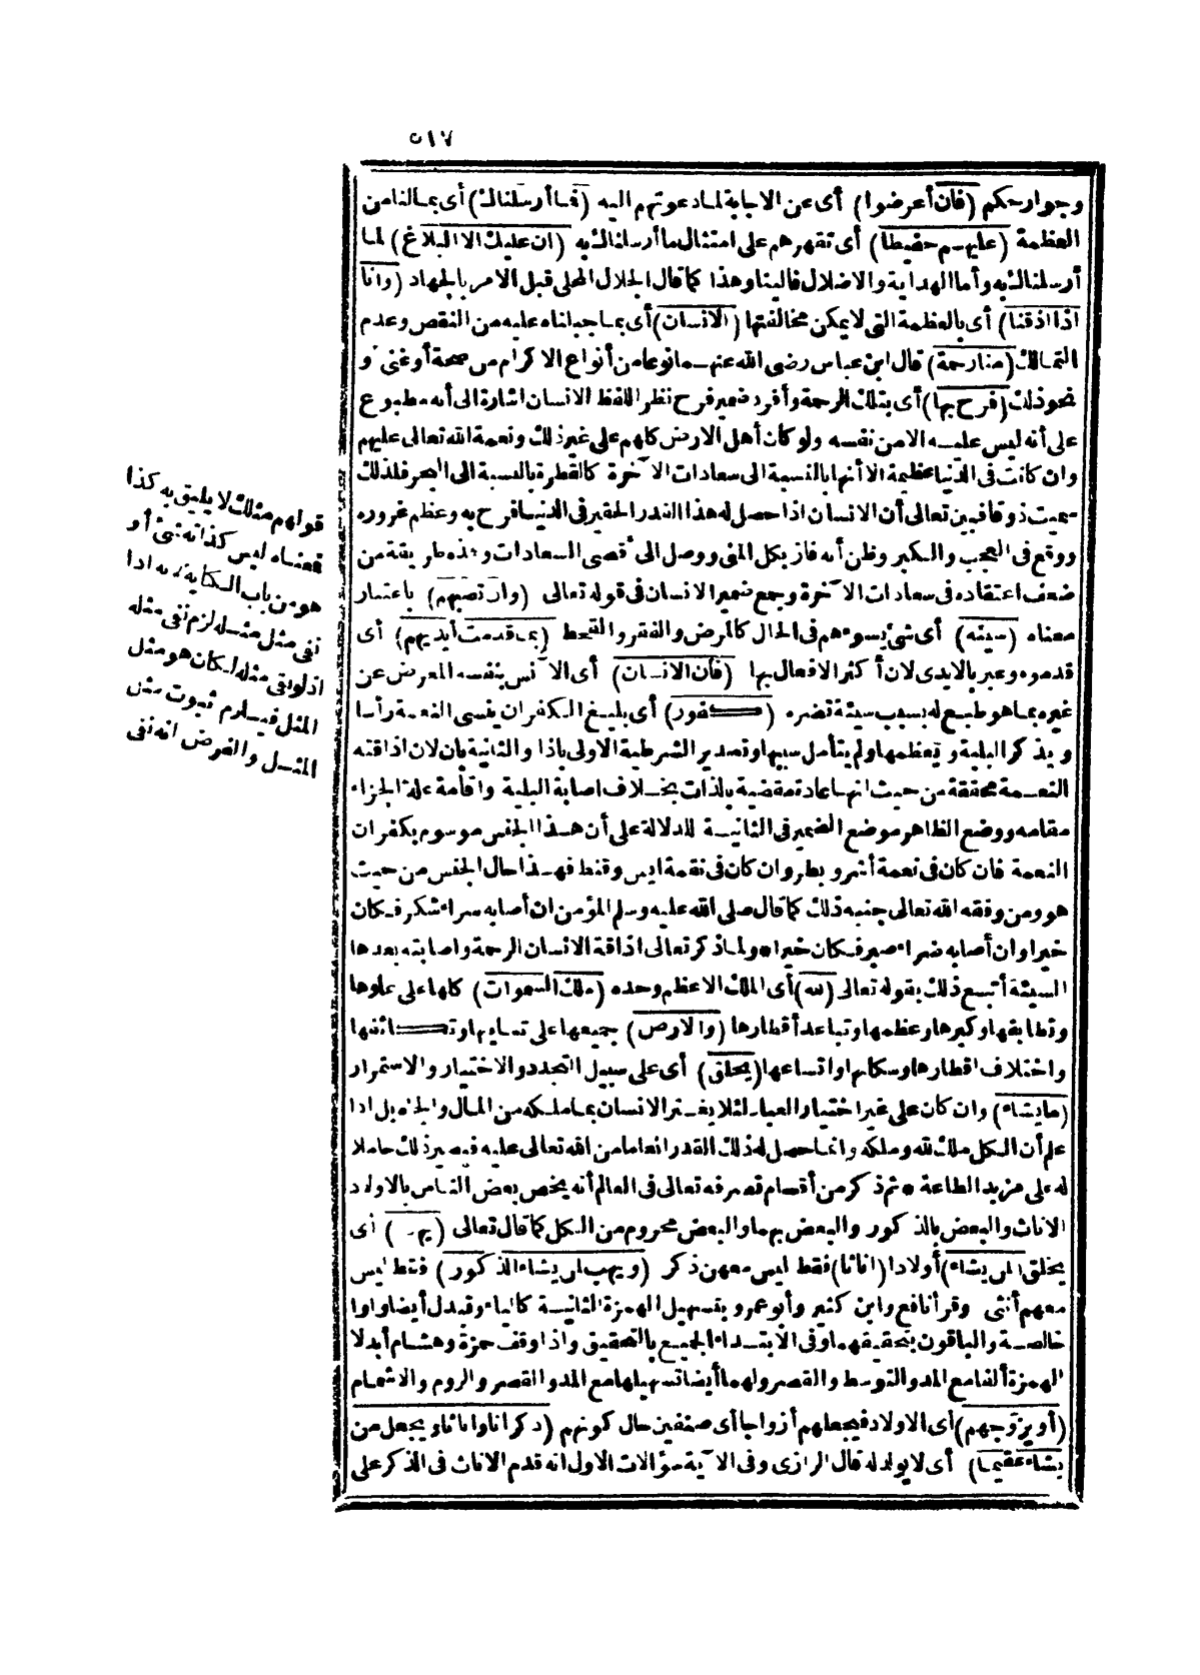 ٥١٧
وجوارحكم (فان أعرضوا) أى عن الاجابة لما دعوتهم اليه (فما أرسلناك) أى بمالنا من
العظمة (عليهم حفيظا) أى تقهرهم على امتثال ما أرسلناك به (ان عليك الا البلاغ) لما
أرسلناك به وأما الهداية والاضلال فالينا وهذا كما قال الجلال المحلى قبل الامر بالجهاد (وانا
اذا اذقنا) أى بالعظمة التى لا يمكن مخالفتها (الانسان) أى بما جبلناه عليه من النقص وعدم
التمالك (منا رحمة) قال ابن عباس رضى الله عنهما نوعا من أنواع الاكرام من صحة أو غنى و
نحو ذلك (فرح بها) أى بتلك الرحمة وأفرد ضمير فرح نظرا للفظ الانسان اشارة الى أنه مطبوع
على أنه ليس علمه الا من نفسه ولو كان أهل الارض كلهم على غير ذلك ونعمة الله تعالى عليهم
وان كانت فى الدنيا عظيمة الا أنها بالنسبة الى سعادات الآخرة كالقطرة بالنسبة الى البحر فلذلك
سميت ذوقا فبين تعالى أن الانسان اذا حصل له هذا القدر الحقير فى الدنيا فرح به وعظم غروره
ووقع فى العجب والكبر وظن أنه فاز بكل المنى ووصل الى أقصى السعادات وهذه طريقة من
ضعف اعتقاده فى سعادات الآخرة وجمع ضمير الانسان فى قوله تعالى (وان تصبهم) باعتبار
معناه (سيئة) أى شئ يسوءهم فى الحال كالمرض والفقر والقحط (بما قدمت أيديهم) أى
قدموه وعبر بالايدى لان أكثر الافعال بها (فان الانسان) أى الآنس بنفسه المعرض عن
غيره بما هو طبع له بسبب سيئة تضره (كفور) أى بليغ الكفران ينسى النعمة رأسا
ويذكر البلية ويعظمها ولم يتأمل سببها وتصدير الشرطية الاولى باذا والثانية بان لان اذاقته
النعمة محققة من حيث انها عادة مقضية بالذات بخلاف اصابة البلية واقامة علة الجزاء
مقامه ووضع الظاهر موضع الضمير فى الثانية للدلالة على أن هذا الجنس موسوم بكفران
النعمة فان كان فى نعمة أشر وبطر وان كان فى نقمة ايس وقنط فهذا حال الجنس من حيث
هو ومن وفقه الله تعالى جنبه ذلك كما قال صلى الله عليه وسلم المؤمن ان أصابه سراء شكر فكان
خيرا وان أصابه ضراء صبر فكان خيرا ه ولما ذكر تعالى اذاقة الانسان الرحمة واصابته بعدها
السيئة أتبع ذلك بقوله تعالى (لله) أى الملك الاعظم وحده (ملك السموات) كلها على علوها
وتطابقها وكبرها وعظمها وتباعد أقطارها (والارض) جميعها على تباينها وتكاثفها
واختلاف اقطارها وسكانها واتساعها (يخلق) أى على سبيل التجدد والاختيار والاستمرار
(ما يشاء) وان كان على غير اختيار العباد لئلا يغتر الانسان بما ملكه من المال والجاه بل اذا
علم أن الكل ملك لله وملكه وانما حصل له ذلك القدر انعاما من الله تعالى عليه فيصير ذلك حاملا
له على مزيد الطاعة ه ثم ذكر من أقسام تصرفه تعالى فى العالم أنه يخص بعض الناس بالاولاد
الاناث والبعض بالذكور والبعض بهما والبعض محروم من الكل كما قال تعالى (يهب) أى
يخلق (لمن يشاء) أولادا (اناثا) فقط ليس معهن ذكر (ويهب لمن يشاء الذكور) فقط ليس
معهم أنثى وقرأ نافع وابن كثير وأبو عمرو بتسهيل الهمزة الثانية كالياء وتبدل أيضا واوا
خالصة والباقون بتحقيقهما وفى الابتداء الجميع بالتحقيق واذا وقف حمزة وهشام أبدلا
الهمزة ألفا مع المد والتوسط والقصر ولهما أيضا تسهيلها مع المد والقصر والروم والاشمام
(أو يزوجهم) أى الاولاد فيجعلهم أزواجا أى صنفين حال كونهم (ذكرانا واناثا ويجعل من
يشاء عقيما) أى لا يولد له قال الرازى وفى الآية سؤالات الاول انه قدم الاناث فى الذكر على
قولهم مثلك لا يليق به كذا
فمعناه ليس كذاته شئ أو
هو من باب الكناية لانه اذا
نفى مثل مثله لزم نفى مثله
اذ لو بقى مثله لكان هو مثل
المثل فيلزم ثبوت مثل
المثل والفرض انه نفى